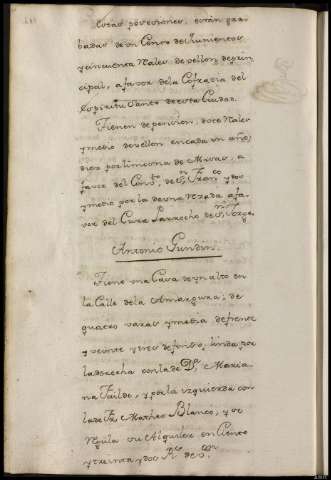 Estas posesiones, estan gra-
badas de un Censo de quinientos
y cincuenta Rales de vellon de prin-
cipal, a favor de la Cofradia del
Espiritu Santo de esta Ciudad.
Tienen de pension, doce Rales
y medio de vellon en cada un año;
diez por limosna de Misas, a
favor del Conv.to de S.n Fran.co y dos
y medio por la de una rezada a fa-
vor del Cura Parrocho de S.n Jorge
Antonio Gundin.
Tiene una Casa de un alto en
la Calle de la Amargura; de
quatro varas y media de frente
y veinte y tres de fondo; linda por
la derecha con la de D.a Maria-
na Failde, y por la izquierda con
la de Fr. Matheo Blanco, y se
regula su Alquiler en Ciento
y treinta y dos R.s de v.on